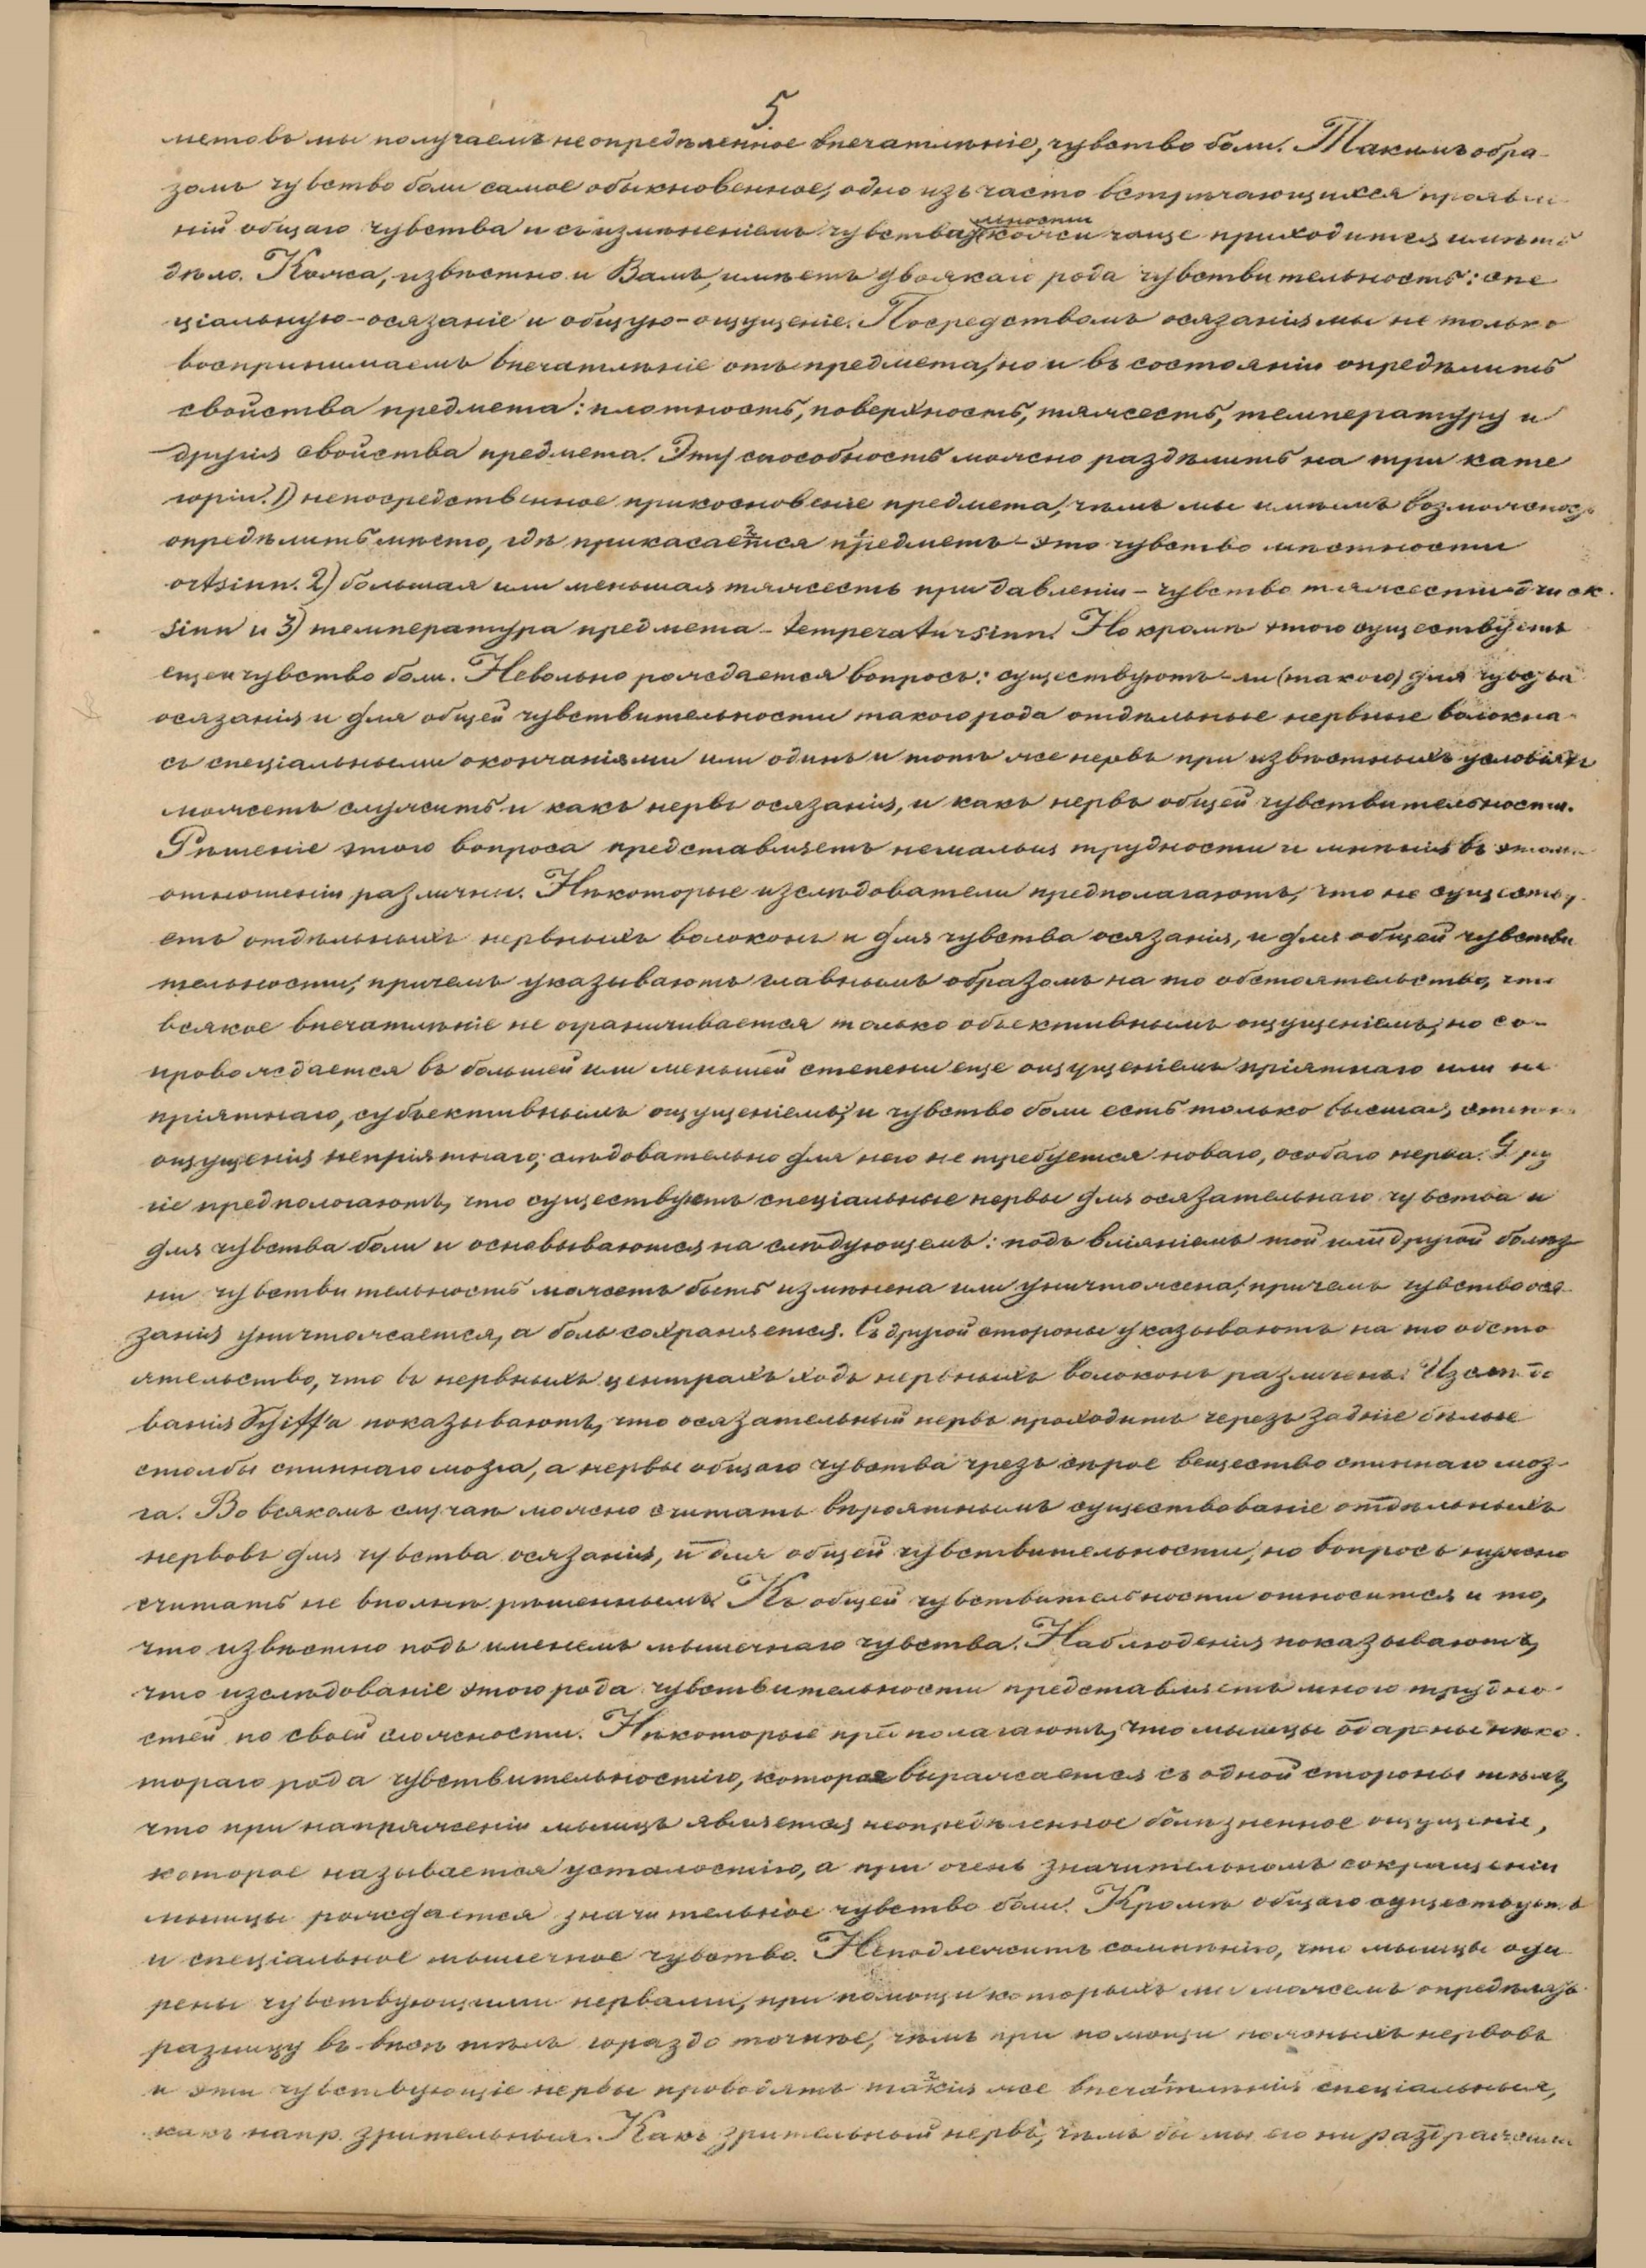 5.
метовъ мы получаемъ неопредѣленное впечатлѣніе, чувство боли. Такимъ обра-
зомъ чувство боли самое обыкновенное, одно изъ часто встрѣчающихся проявле-
ній общаго чувства и съ измѣненіемъ чувствительности кожи чаще приходится имѣть
дѣло. Кожа, извѣстно и Вамъ, имѣетъ двоякаго рода чувствительность: спе
ціальную - осязаніе и общую - ощущеніе. Посредствомъ осязанія мы не только
воспринимаемъ впечатлѣніе отъ предмета, но и въ состояніи опредѣлить
свойства предмета: плотность, поверхность, тяжесть, температуру и
другія свойства предмета. Эту способность можно раздѣлить на три кате
горіи. 1) непосредственное прикосновеніе предмета, чѣмъ мы имѣемъ возможность
опредѣлить мѣсто, гдѣ прикасается предметъ - это чувство мѣстности
ortsinn. 2) большая или меньшая тяжесть при давленіи - чувство тяжести - druck.
sinn и 3) температура предмета - temperatursinn. Но кромѣ этого существуетъ
еще и чувство боли. Невольно рождается вопросъ: существуютъ-ли (такого) для чувства
осязанія и для общей чувствительности такого рода отдѣльные нервные волокна
съ спеціальными окончаніями или одинъ и тотъ же нервъ при извѣстныхъ условіяхъ
можетъ служить и какъ нервъ осязанія, и какъ нервъ общей чувствительности.
Рѣшеніе этого вопроса представляетъ немалыя трудности и мнѣнія въ этомъ
отношеніи различны. Нѣкоторые изслѣдователи предполагаютъ, что не существу-
етъ отдѣльныхъ нервныхъ волоконъ и для чувства осязанія, и для общей чувстви
тельности, причемъ указываютъ главнымъ образомъ на то обстоятельство, что
всякое впечатлѣніе не ограничивается только объективнымъ ощущеніемъ, но со-
провождается въ большей или меньшей степени еще ощущеніемъ пріятнаго или не
пріятнаго, субъективнымъ ощущеніемъ, и чувство боли есть только высшая степень
ощущенія непріятнаго; слѣдовательно для него не требуется новаго, особаго нерва. Дру
гіе предпологаютъ, что существуетъ спеціальные нервы для осязательнаго чувства и
для чувства боли и основываются на слѣдующемъ: подъ вліяніемъ той или другой болѣз
ни чувствительность можетъ быть измѣнена или уничтожена, причемъ чувство ося-
занія уничтожается, а боль сохраняется. Съ другой стороны указываютъ на то обсто
ятельство, что въ нервныхъ центрахъ ходъ нервныхъ волоконъ различенъ. Изслѣдо
ванія Schiff'а показываютъ, что осязательный нервъ проходитъ черезъ задніе бѣлые
столбы спиннаго мозга, а нервы общаго чувства чрезъ сѣрое вещество спиннаго моз-
га. Во всякомъ случаѣ можно считать вѣроятнымъ существованіе отдѣльныхъ
нервовъ для чувства осязанія, и для общей чувствительности, но вопросъ нужно
считать не вполнѣ рѣшеннымъ. Къ общей чувствительности относится и то,
что извѣстно подъ именемъ мышечнаго чувства. Наблюденія показываютъ,
что изслѣдованіе этого рода чувствительности представляетъ много трудно-
стей по своей сложности. Нѣкоторые предполагаютъ, что мышцы одарены нѣко-
тораго рода чувствительностію, которая выражается съ одной стороны тѣмъ,
что при напряженіи мышцъ является неопредѣленное болѣзненное ощущеніе,
которое называется усталостію, а при очень значительномъ сокращеніи
мышцы рождается значительное чувство боли. Кромѣ общаго существуетъ
и спеціальное мышечное чувство. Неподлежитъ сомнѣнію, что мышцы ода
рены чувствующими нервами, при помощи которыхъ мы можемъ опредѣлять
разницу въ вѣсѣ тѣлъ гораздо точнѣе, чѣмъ при помощи кожныхъ нервовъ
и эти чувствующіе нервы проводятъ такія же впечатлѣнія спеціальныя,
какъ напр. зрительныя. Какъ зрительный нервъ, чѣмъ бы мы его ни раздражали